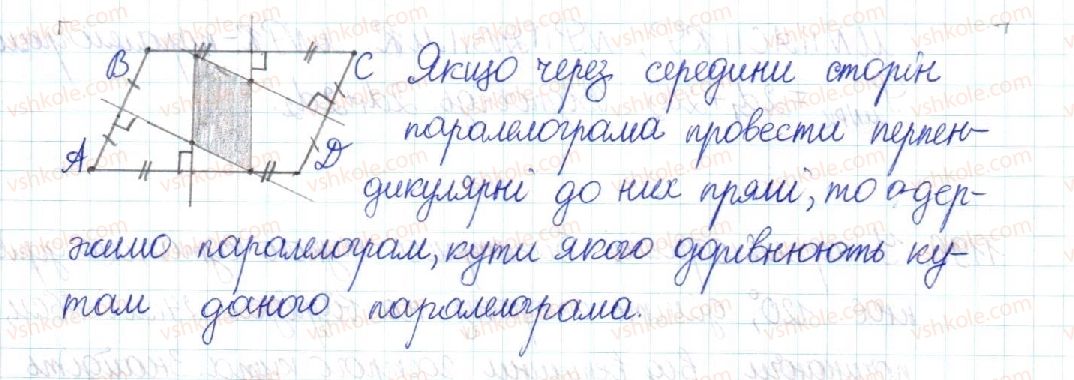 B C Якщо через середини сторін
паралелограма провести перпен-
A D дикулярні до них прямі, то одер-
жимо паралелограм, кути якого дорівнюють ку-
там даного паралелограма.
vshkole.com